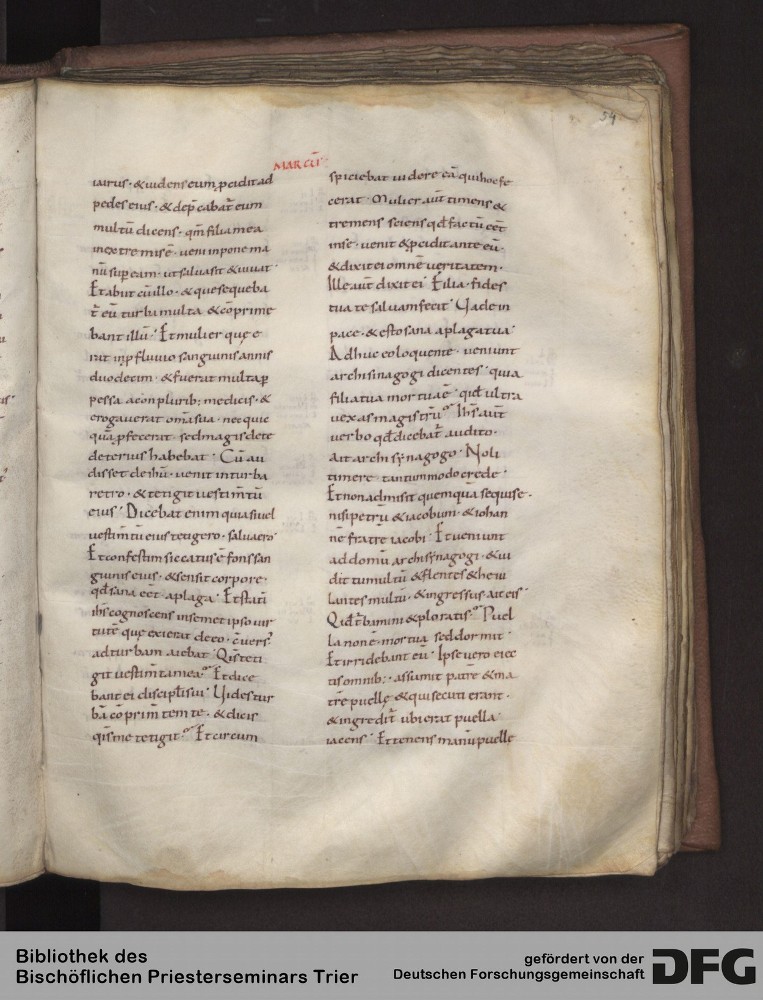 54
MARCŪ
iairus · & uidens eum p̱cidit ad
pedes eius · & dep̄cabat̄ eum
multū dicens · qm̄ filia mea
in extremis ē · ueni inpone ma
nū sup̱ eam · ut salua sit & uiuat ·
Et abiit cū illo · & queseq̄ueba
t̄ eū turba multa · & cōprime
bant illū · Et mulier quę e
rat in p̱fluuio sanguinis annis
duodecim · & fuerat multa p̱
pessa a conplurib; medicis · &
erogauerat om̄a sua · nec quic
quā p̱fecerat · sed magis dete
deterius habebat · Cū au
disset de ihū · uenit in turba
retro · & tetigit uestim̄tū
eius · Dicebat enim quia si uel
uestim̄tū eius tetigero · salua ero ·
Et confestim siccatus ē fons san
guinis eius · & sensit corpore ·
qđ sana eēt a plaga · Et statī
ihs̄ cognoscens in semet ipso uir
tutē quę exierat de eo · cūuers'
ad turbam aiebat · Qis teti
git uestim̄ta mea · Et dice
bant ei discipl̄i sui · Uides tur
bā cōprim̄tem te · & dicis
qis me tetigit · Et circum
spiciebat uidere eā qui hoc fe
cerat · Mulier aūt timens &
tremens sciens qđ factū eēt
in se · uenit & p̱cidit ante eū ·
& dixit ei omnē ueritatem ·
Ille aūt dixit ei · Filia · fides
tua te saluam fecit · Uade in
pace · & esto sana a plaga tua ·
Adhuc eo loquente · ueniunt
archisinagogi dicentes · quia
filia tua mortua ē · quiđ ultra
uexas magistrū · Ihs̄ aūt
uerbo qđ dicebat̄ audito ·
ait archisynagogo · Noli
timere · tantummodo crede ·
Et non admisit quemquā sequi se ·
nisi petrū & iacobum · & iohan
nē fratrē iacobi · Et ueniunt
ad domū archisynagogi · & ui
dit tumultū & flentes & heiu
lantes multū · & ingressus ait eis
Qiđ t̄bamini & ploratis · Puel
la non ē mortua sed dormit ·
Et irridebant eū · Ipse uero eiec
tis omnib; · assumit patrē & ma
trē puellę & qui secū erant ·
& ingredit̄ ubi erat puella
iacens · Et tenens manū puellę
Bibliothek des
Bischöflichen Priesterseminars Trier
gefördert von der
Deutschen Forschungsgemeinschaft
DFG